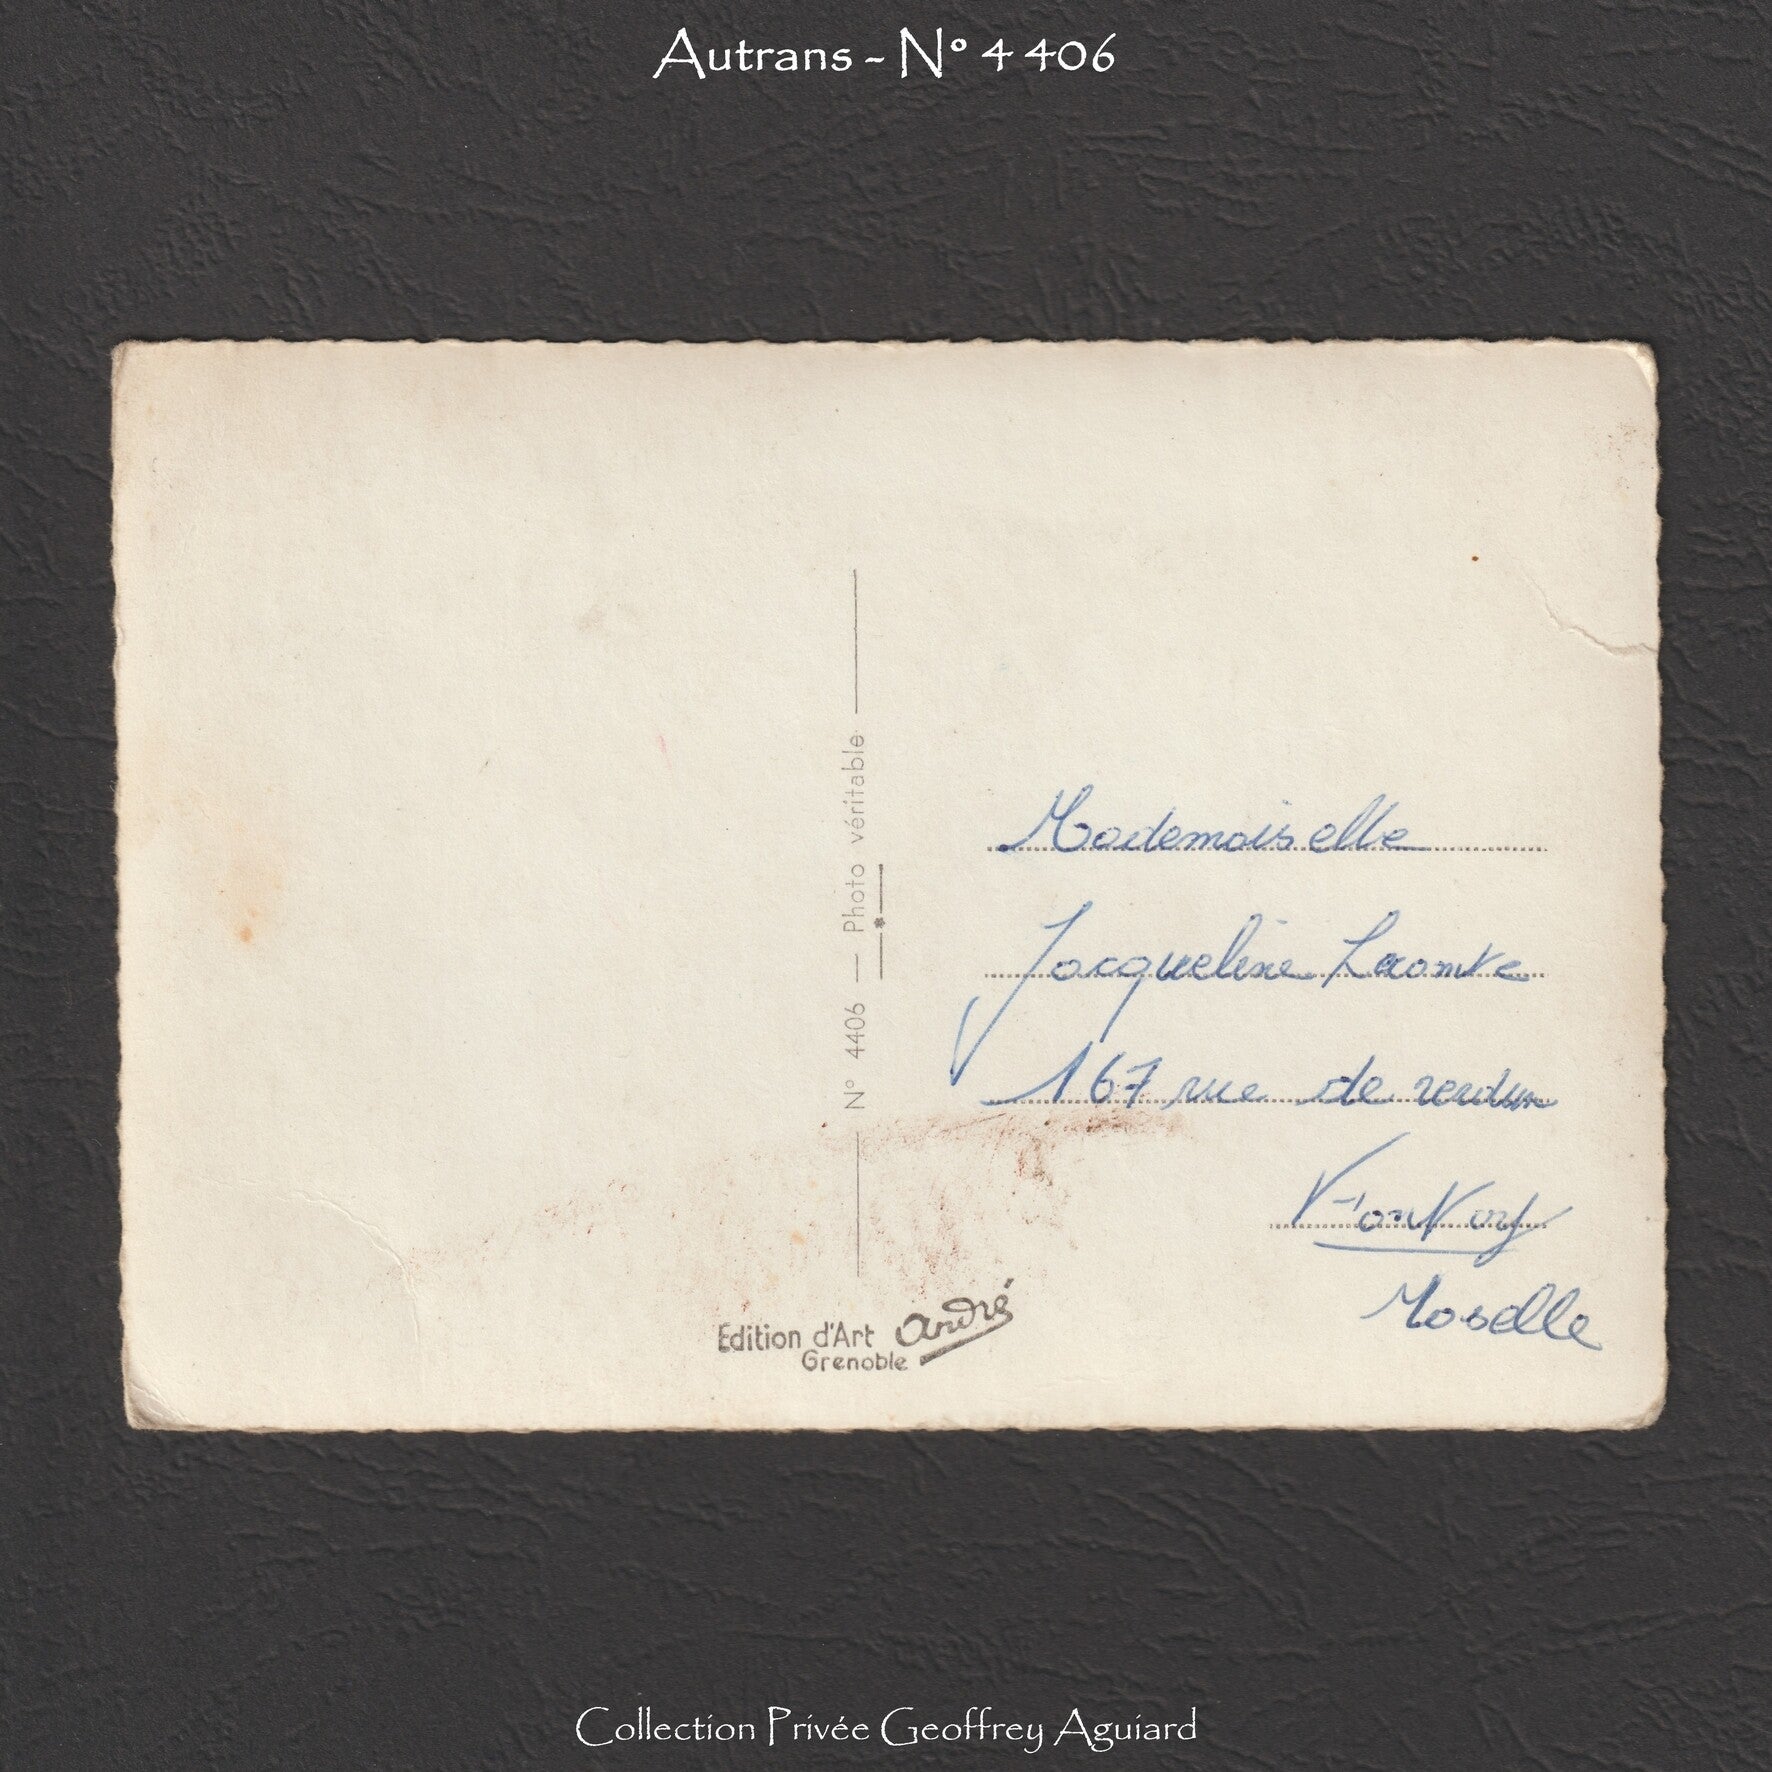 Autrans - N° 4406
N° 4406 — Photo véritable
Mademoiselle
Jacqueline Lecomte
167 rue de verdun
Fontoy
Moselle
Edition d'Art André
Grenoble
Collection Privée Geoffrey Aguiard